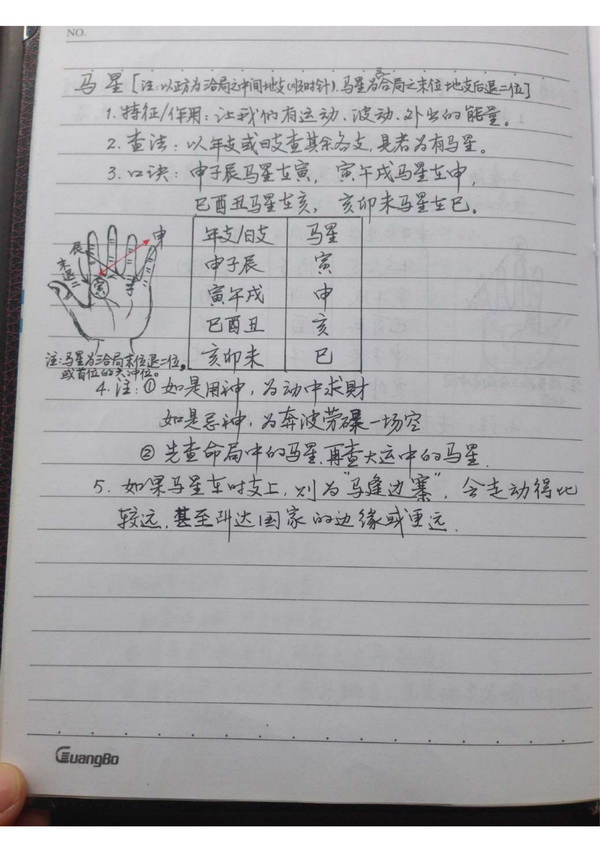 NO.
马星[注:以四方为三合局之中间地支(顺时针).马星为三合局之末位地支后退二位]
1.特征/作用:让我们有运动、波动、外出的能量。
2.查法:以年支或日支查其余各支,见者为有马星。
3.口诀:申子辰马星在寅,寅午戌马星在申,
巳酉丑马星在亥,亥卯未马星在巳。
年支/日支 马星
申子辰 寅
寅午戌 申
巳酉丑 亥
亥卯未 巳
辰 申
寅 子
注:马星为三合局末位退二位。
或首位的六冲位。
4.注:①如是用神,为动中求財
如是忌神,为奔波劳碌一场空
②先查命局中的马星.再查大运中的马星.
5.如果马星在时支上,则为“马逢边寨”,会走动得比
较远.甚至到达国家的边缘或更远.
GuangBo